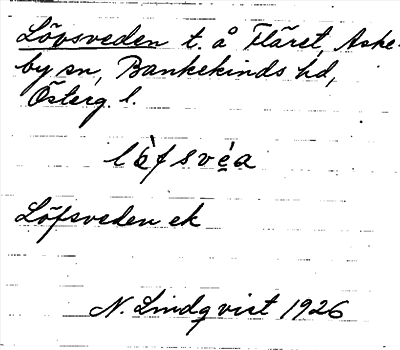 Lövsveden t. å Fläret, Aske-
by sn, Bankekinds hd,
Österg. l.
Löfsveden ek
N. Lindqvist 1926